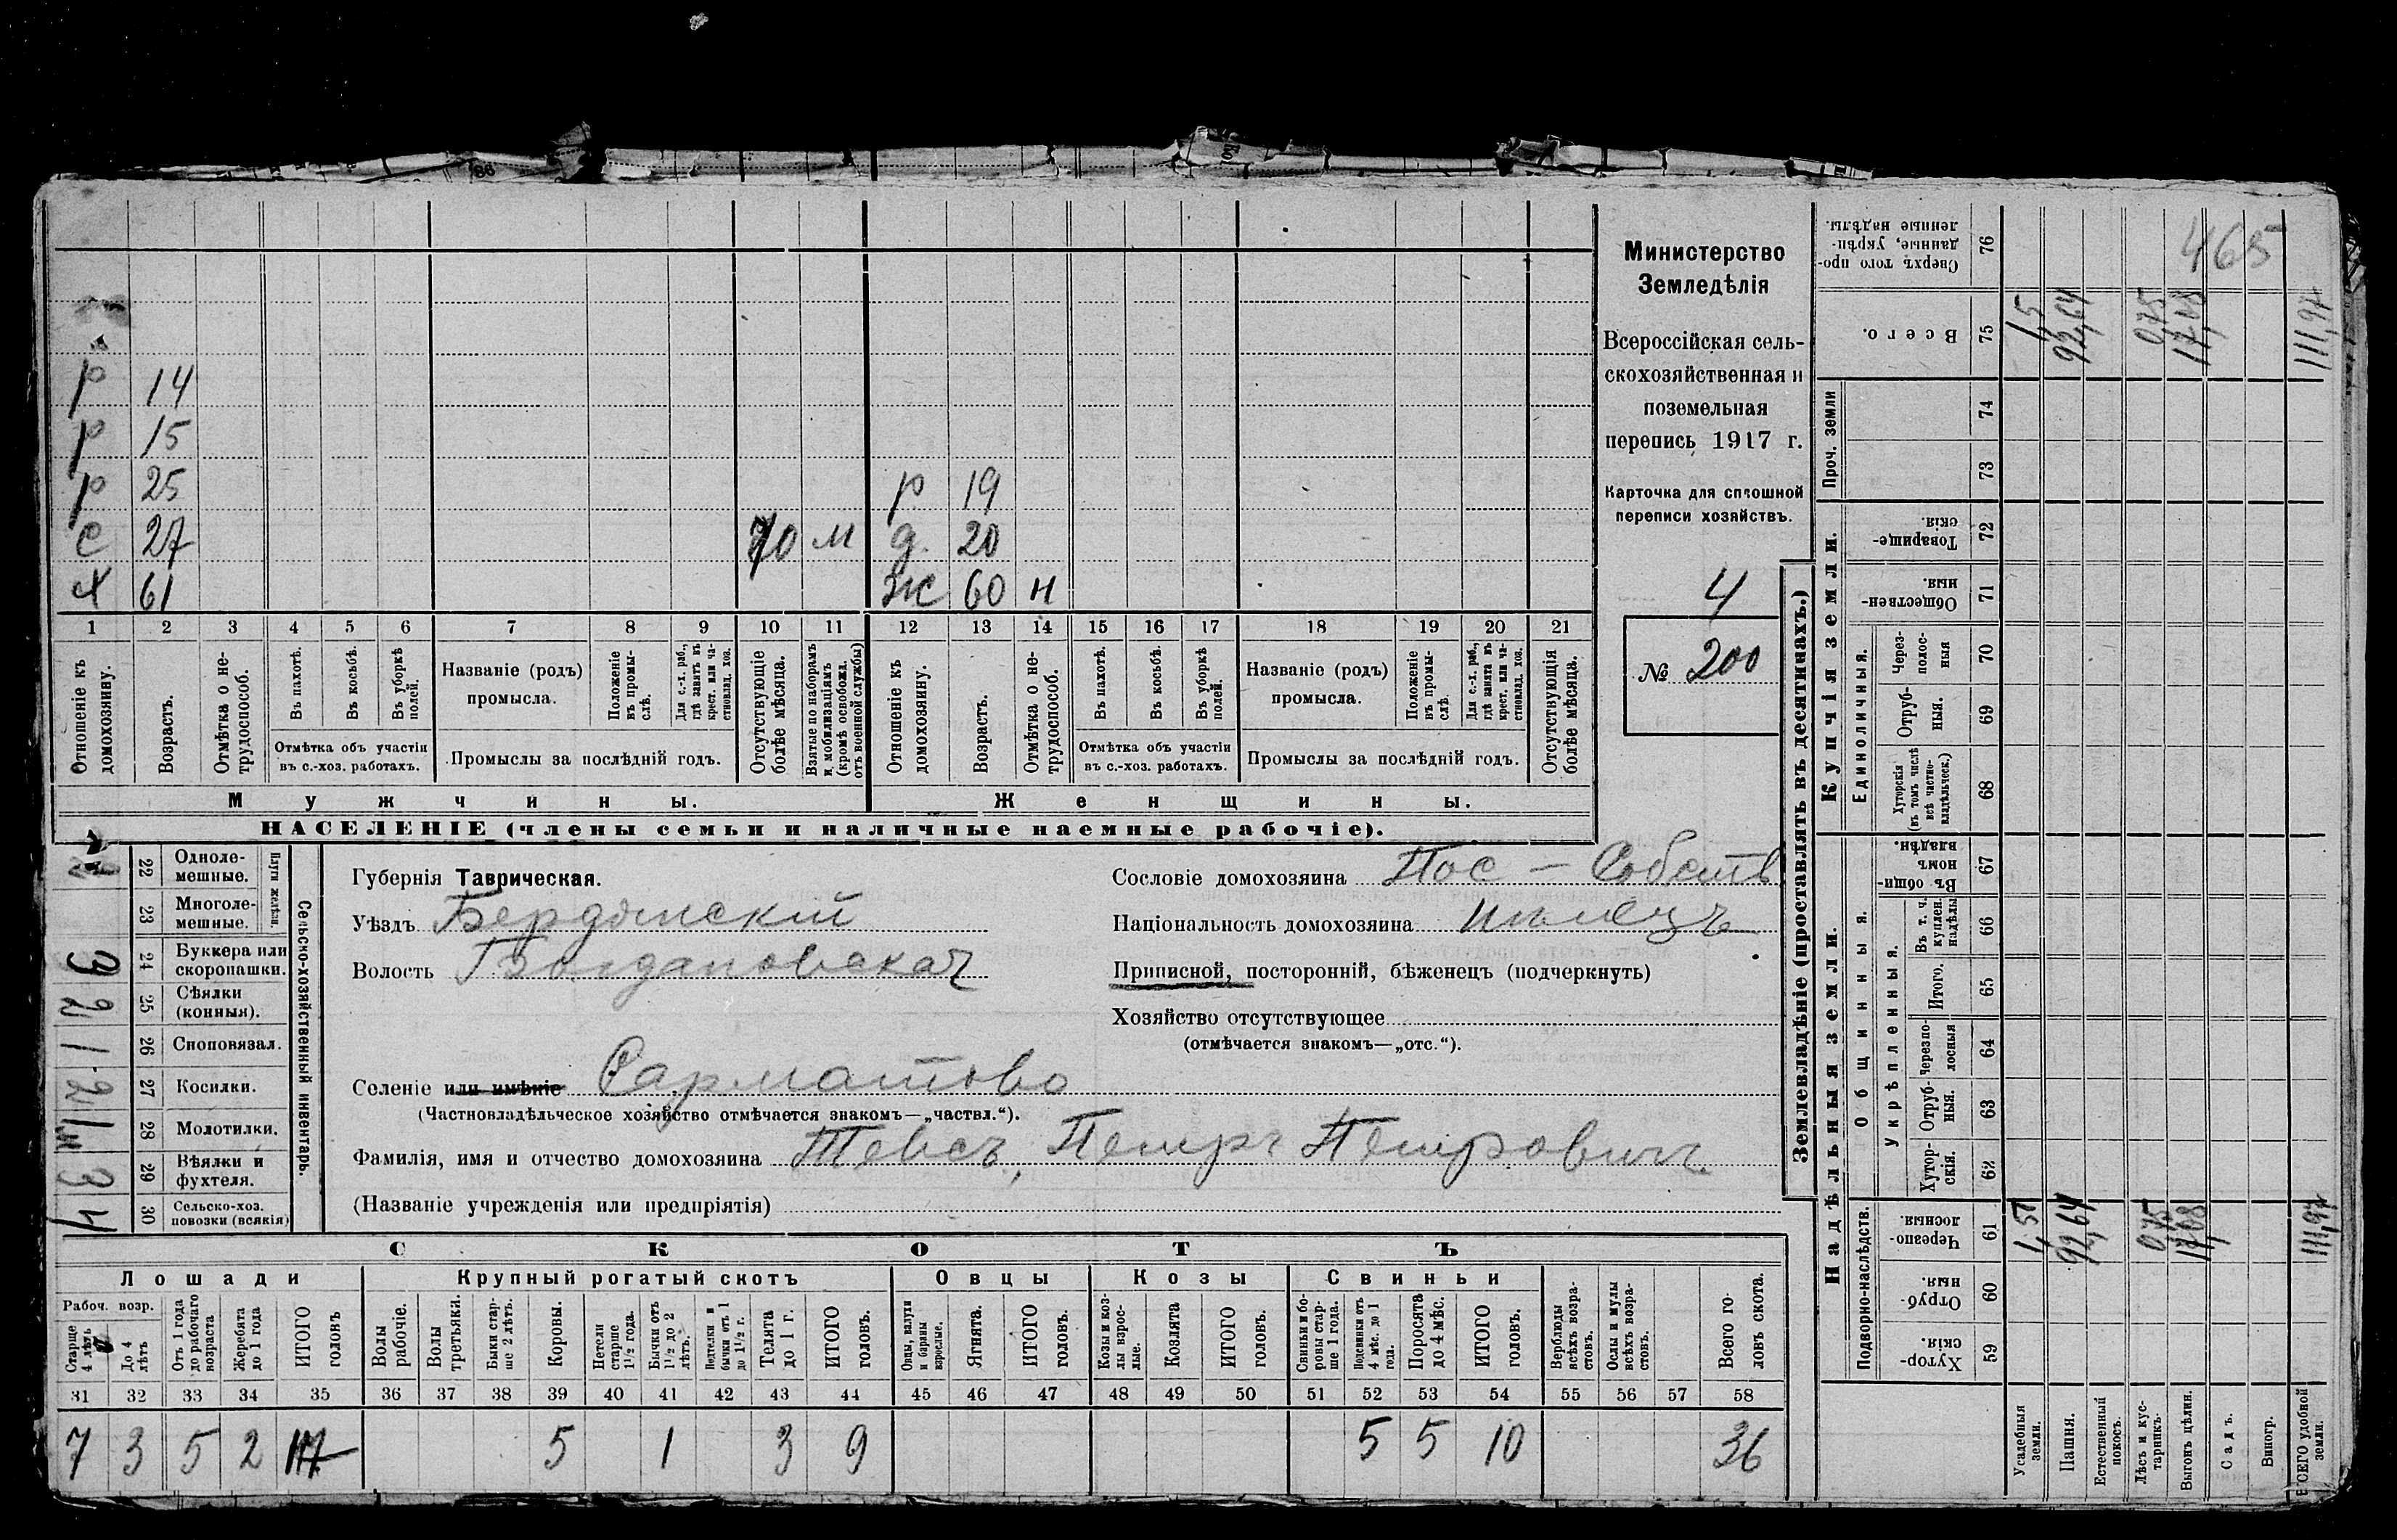 465
Министерство
Земледѣлія
Всероссійская сель-
скохозяйственная и
поземельная
перепись 1917 г.
Карточка для сплошной
переписи хозяйствъ.
4
№ 200
р 14
р 15
р 25 р 19
с 27 10 м д. 20
х 61 ж 60 н
1 2 3 4 5 6 7 8 9 10 11 12 13 14 15 16 17 18 19 20 21
Отношеніе къ домохозяину.
Возрастъ.
Отмѣтка о не-трудоспособ.
Въ пахотѣ.
Въ косьбѣ.
Въ уборкѣ полей.
Отмѣтка объ участіи
въ с.-хоз. работахъ.
Названіе (родъ)
промысла.
Положеніе въ промы-слѣ.
Для с.-х. раб., гдѣ занятъ въ крест. или ча-стновлад. хоз.
Промыслы за послѣдній годъ.
Отсутствующіе болѣе мѣсяца.
Взятые по наборамъ и мобилизаціямъ (кромѣ освобожд. отъ военной службы)
Отношеніе къ домохозяину.
Возрастъ.
Отмѣтка о не-трудоспособ.
Въ пахотѣ.
Въ косьбѣ.
Въ уборкѣ полей.
Отмѣтка объ участіи
въ с.-хоз. работахъ.
Названіе (родъ)
промысла.
Положеніе въ промы-слѣ.
Для с.-х. раб., гдѣ занята въ крест. или ча-стновлад. хоз.
Промыслы за послѣдній годъ.
Отсутствующія болѣе мѣсяца.
Мужчины. Женщины.
НАСЕЛЕНІЕ (члены семьи и наличные наемные рабочіе).
Сельско-хозяйственный инвентарь.
22 Одноле-мешные.
23 Многоле-мешные.
3 24 Буккера или скоропашки.
2 25 Сѣялки (конныя).
1 26 Сноповязал.
2 27 Косилки.
28 Молотилки.
3 29 Вѣялки и фухтеля.
4 30 Сельско-хоз. повозки (всякія)
Губернія Таврическая.
Уѣздъ Бердянскій
Волость Богдановская
Селеніе или имѣніе Сарматово
(Частновладѣльческое хозяйство отмѣчается знакомъ—„частвл.“).
Фамилія, имя и отчество домохозяина Тевсъ, Петръ Петровичъ
(Названіе учрежденія или предпріятія)
Сословіе домохозяина Пос - Собств
Національность домохозяина Нѣмецъ
Приписной, посторонній, бѣженецъ (подчеркнуть)
Хозяйство отсутствующее
(отмѣчается знакомъ—„отс.“).
СКОТЪ
Лошади Крупный рогатый скотъ Овцы Козы Свиньи
Рабоч. возр.
Старше 4 лѣтъ
До 4 лѣтъ
Отъ 1 года до рабочаго возраста
Жеребята до 1 года
ИТОГО головъ
Волы рабочіе.
Волы третьяки.
Быки стар-ше 2 лѣтъ.
Коровы.
Нетели старше 1½ года.
Бычки отъ 1½ до 2 лѣтъ.
Нетелки и бычки отъ 1 до 1½ г.
Телята до 1 г.
ИТОГО головъ.
Овцы, валухи и бараны взрослые.
Ягнята.
ИТОГО головъ.
Козы и коз-лы взрос-лые.
Козлята
ИТОГО головъ.
Свиньи и бо-ровы стар-ше 1 года.
Подсвинки отъ 4 мѣс. до 1 года.
Поросята до 4 мѣс.
ИТОГО головъ.
Верблюды всѣхъ возра-стовъ.
Ослы и мулы всѣхъ возра-стовъ.
Всего го-ловъ скота.
31 32 33 34 35 36 37 38 39 40 41 42 43 44 45 46 47 48 49 50 51 52 53 54 55 56 57 58
7 3 5 2 17 5 1 3 9 5 5 10 36
Землевладѣніе (проставлять въ десятинахъ.)
Надѣльныя земли. Купчія земли. Проч. земли
Подворно-наслѣдств.
Общинныя.
Укрѣпленныя.
Единоличныя.
Хутор-скія. 59
Отруб-ныя. 60
Черезпо-лосныя. 61
Хутор-скія. 62
Отруб-ныя. 63
Черезпо-лосныя 64
Итого. 65
Въ т. ч. куплен. надѣлы 66
Въ общи-номъ владѣн. 67
Хуторскія (въ томъ числѣ всѣ частно-владѣльческ.) 68
Отруб-ныя. 69
Через-полос-ныя 70
Обществен-ныя. 71
Товарище-скія. 72
73
74
Всего. 75
Сверхъ того про-данные, укрѣп-ленные надѣлы. 76
Усадебныя земли. 1,5 1,5
Пашня. 92,64 92,64
Естественный покосъ.
Лѣсъ и кус-тарникъ. 0,75 0,75
Выгонъ цѣлин. 17,08 17,08
Садъ.
Виногр.
ВСЕГО удобной земли. 111,97 111,97